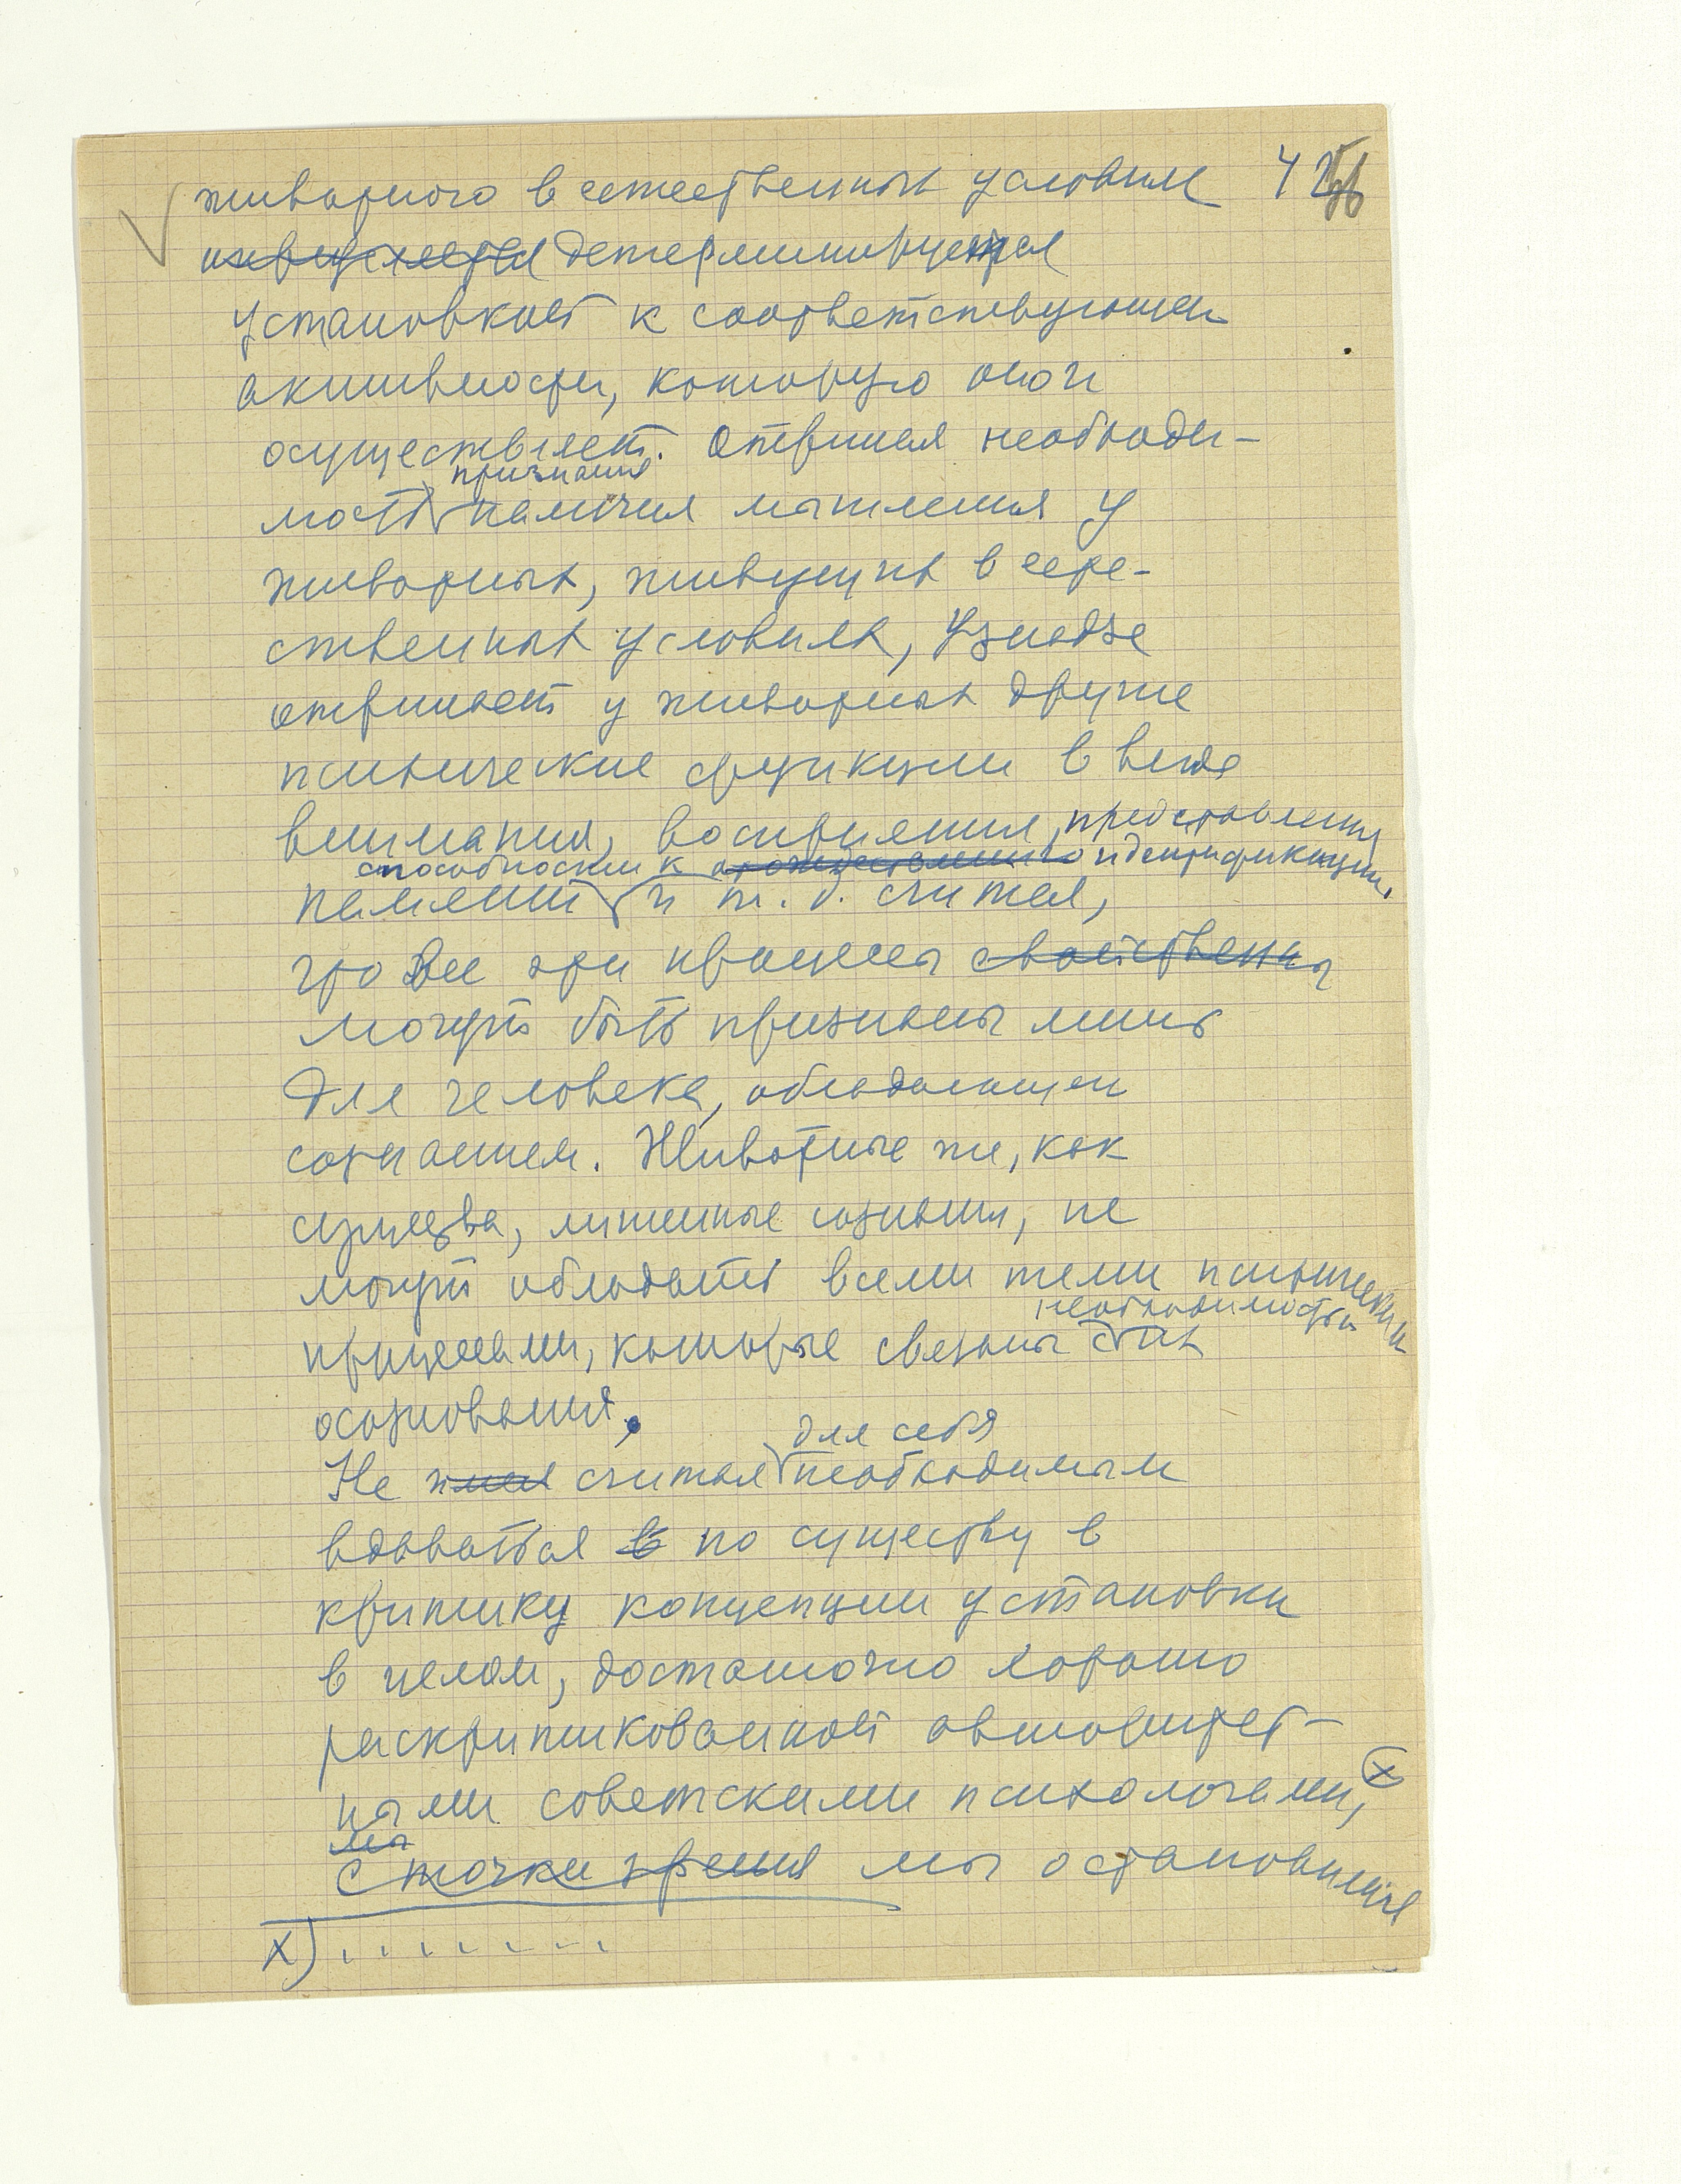 животного в естественных условиях 42
детерминируется
установкой к соответствующей
активности, которую он и
осуществляет. Отрицая необходи-
признания
мость наличия мышления у
животных, живущих в есте-
ственных условиях, Узнадзе
отрицает у животных другие
психические функции в виде
внимания, восприятия, представления,
способности к отождествлению идентификации,
памяти и т. д. считая,
что все эти процессы свойственны
могут быть признаны лишь
для человека, обладающего
сознанием. Животные же, как
существа, лишенные сознания, не
могут обладать всеми теми психическими
необходимостью
процессами, которые связаны с их
осознования.
для себя
Не считая необходимым
вдаваться в по существу в
критику концепции установки
в целом, достаточно хорошо
раскритикованной авторитет-
ными советскими психологами, x
мы
с точки зрения мы остановимся
x) . . . . . . . .